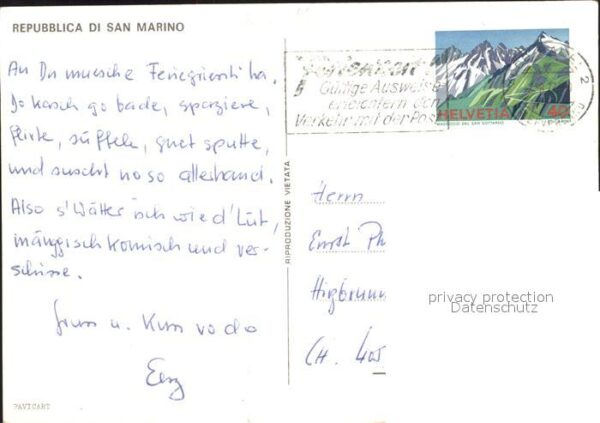 REPUBBLICA DI SAN MARINO
An Du muesch e Feriegriessli ha.
Do kasch go bade, spaziere,
flirte, süffele, guet
und suscht no so allerhand.
Also s'Wätter isch wie d'Lüt,
mänggisch komisch und ver-
schisse.
Gruss u. Kuss vo do
PAVICART
RIPRODUZIONE VIETATA
Gültige Ausweise
erleichtern den
Verkehr mit der Post
HELVETIA
Herrn
Ernst Ph
CH. 405
privacy protection
Datenschutz